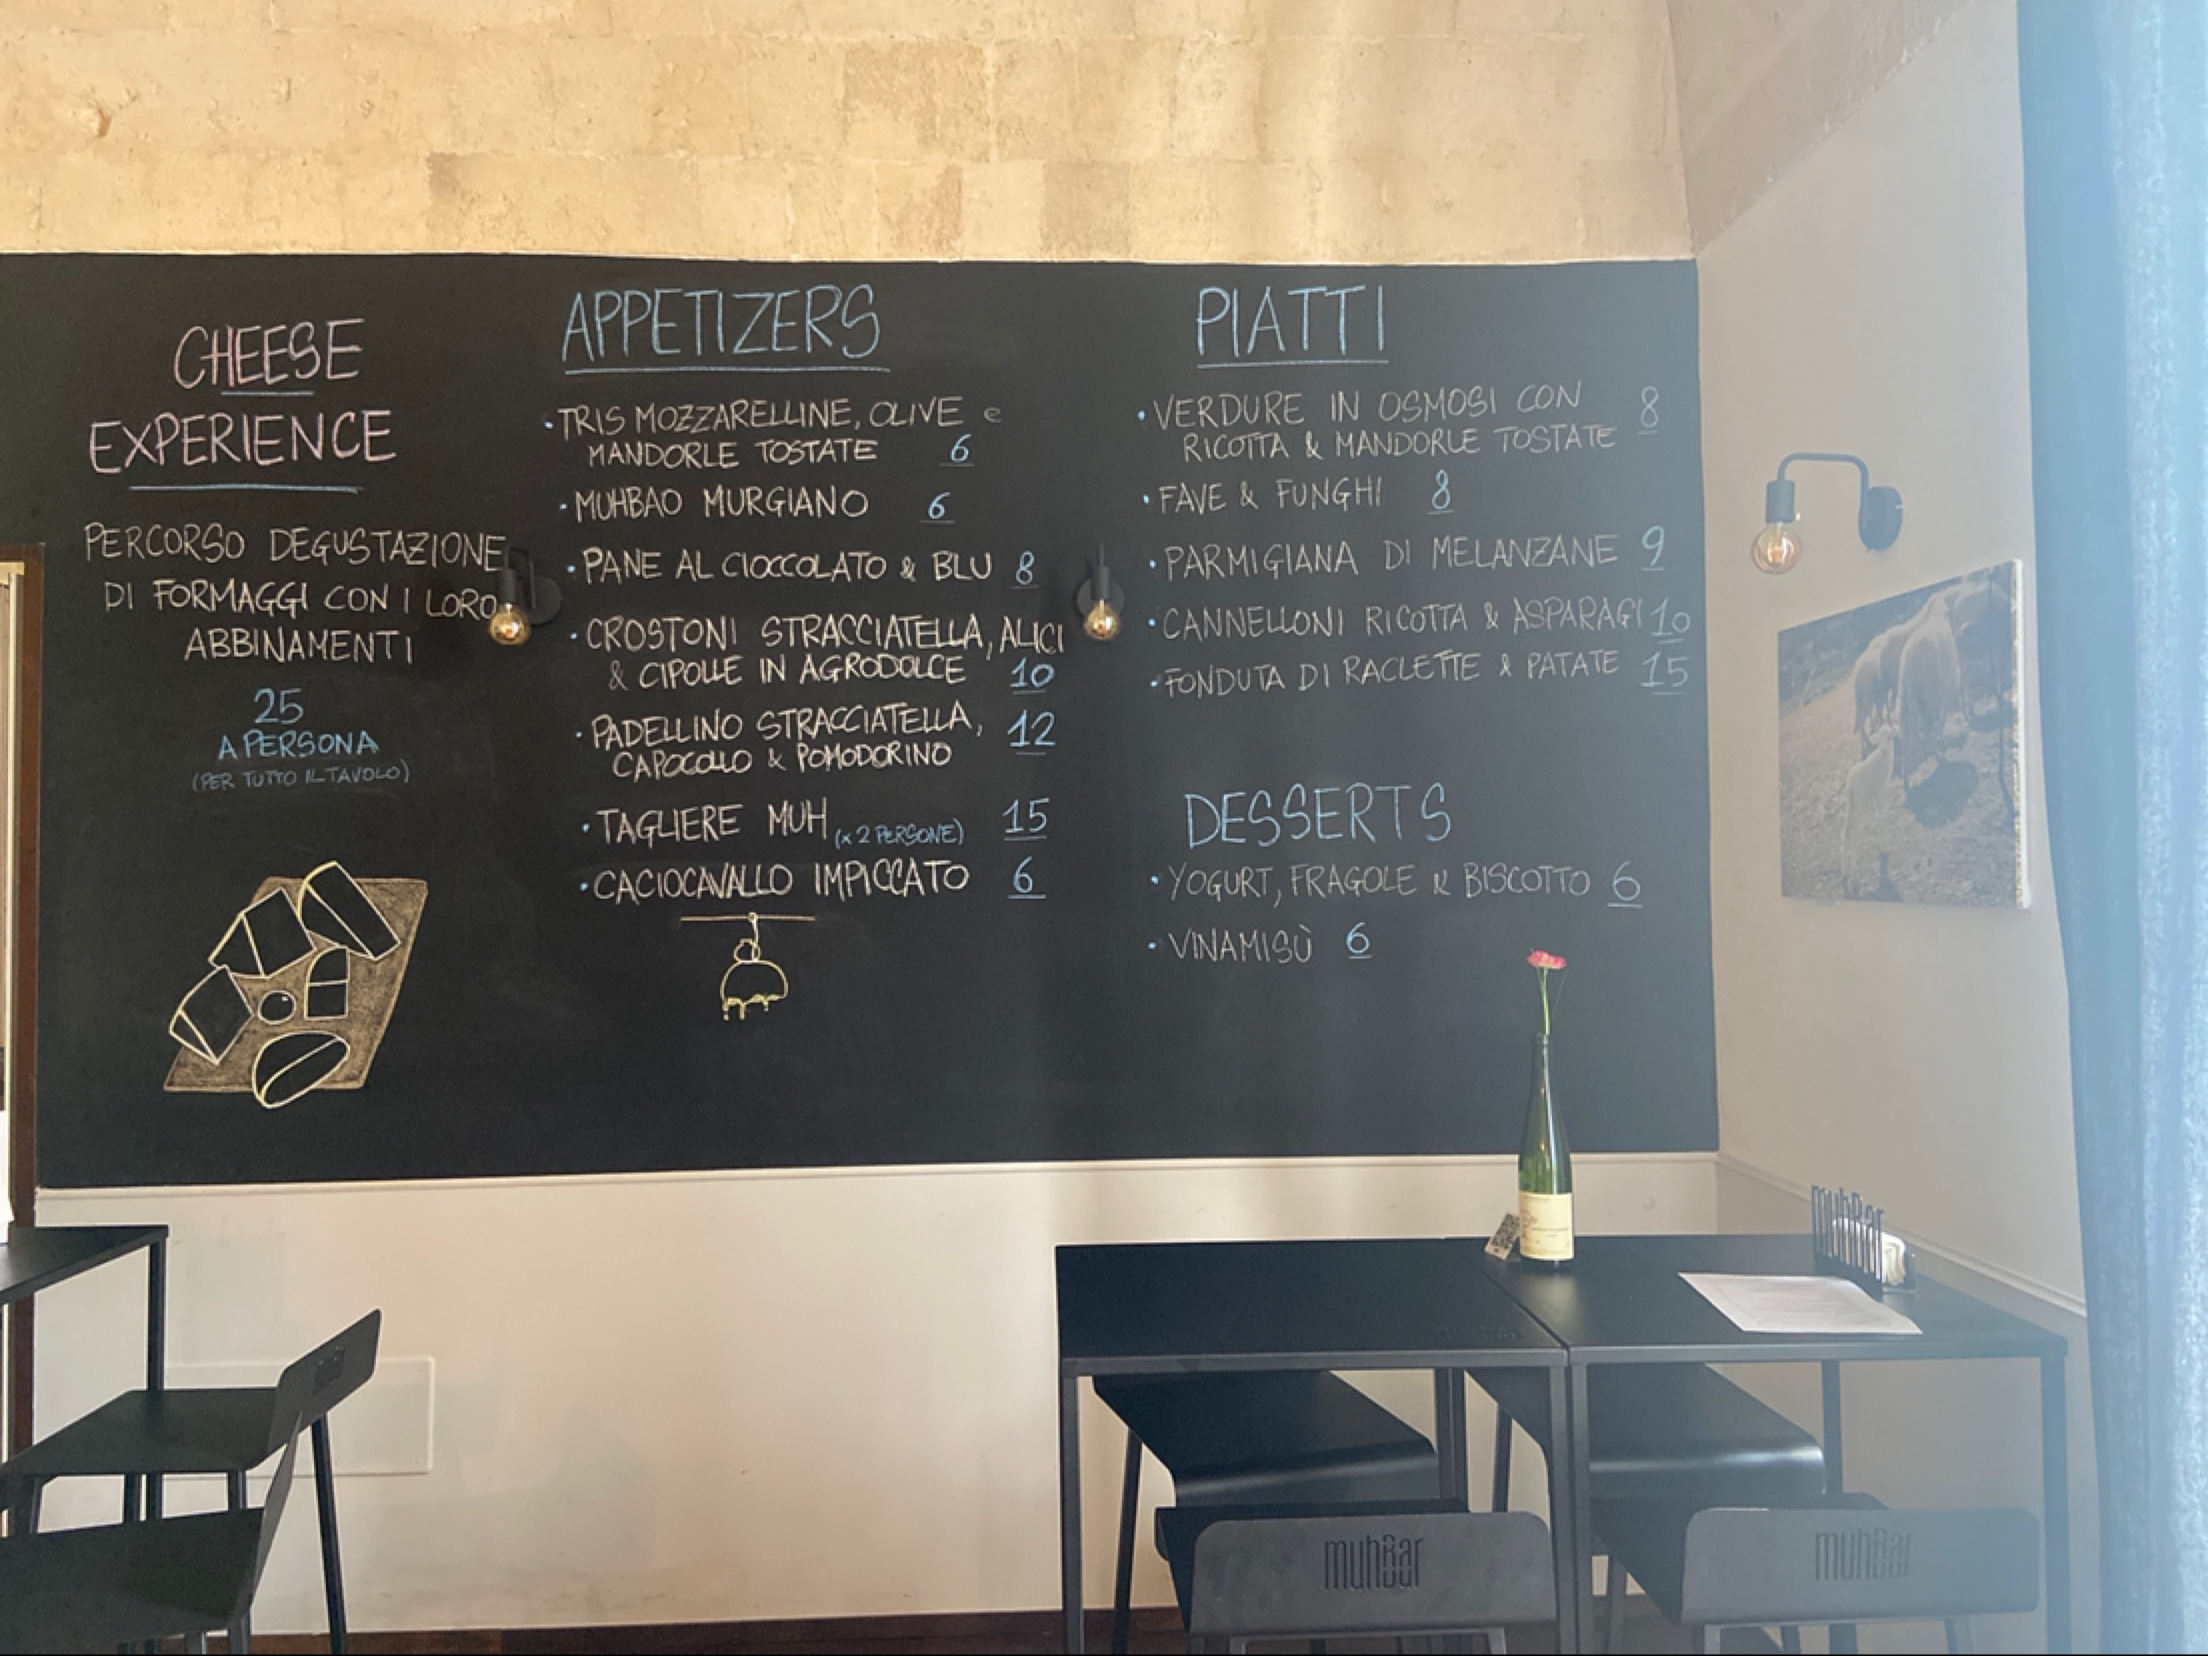 CHEESE
EXPERIENCE
PERCORSO DEGUSTAZIONE
DI FORMAGGI CON I LORO
ABBINAMENTI
25
A PERSONA
(PER TUTTO IL TAVOLO)
APPETIZERS
• TRIS MOZZARELLINE, OLIVE e
MANDORLE TOSTATE 6
• MUHBAO MURGIANO 6
• PANE AL CIOCCOLATO & BLU 8
• CROSTONI STRACCIATELLA, ALICI
& CIPOLLE IN AGRODOLCE 10
• PADELLINO STRACCIATELLA, 12
CAPOCOLLO & POMODORINO
• TAGLIERE MUH (x 2 PERSONE) 15
• CACIOCAVALLO IMPICCATO 6
PIATTI
• VERDURE IN OSMOSI CON 8
RICOTTA & MANDORLE TOSTATE
• FAVE & FUNGHI 8
• PARMIGIANA DI MELANZANE 9
• CANNELLONI RICOTTA & ASPARAGI 10
• FONDUTA DI RACLETTE & PATATE 15
DESSERTS
• YOGURT, FRAGOLE & BISCOTTO 6
• VINAMISÙ 6
muhBar
muhBar
muhBar